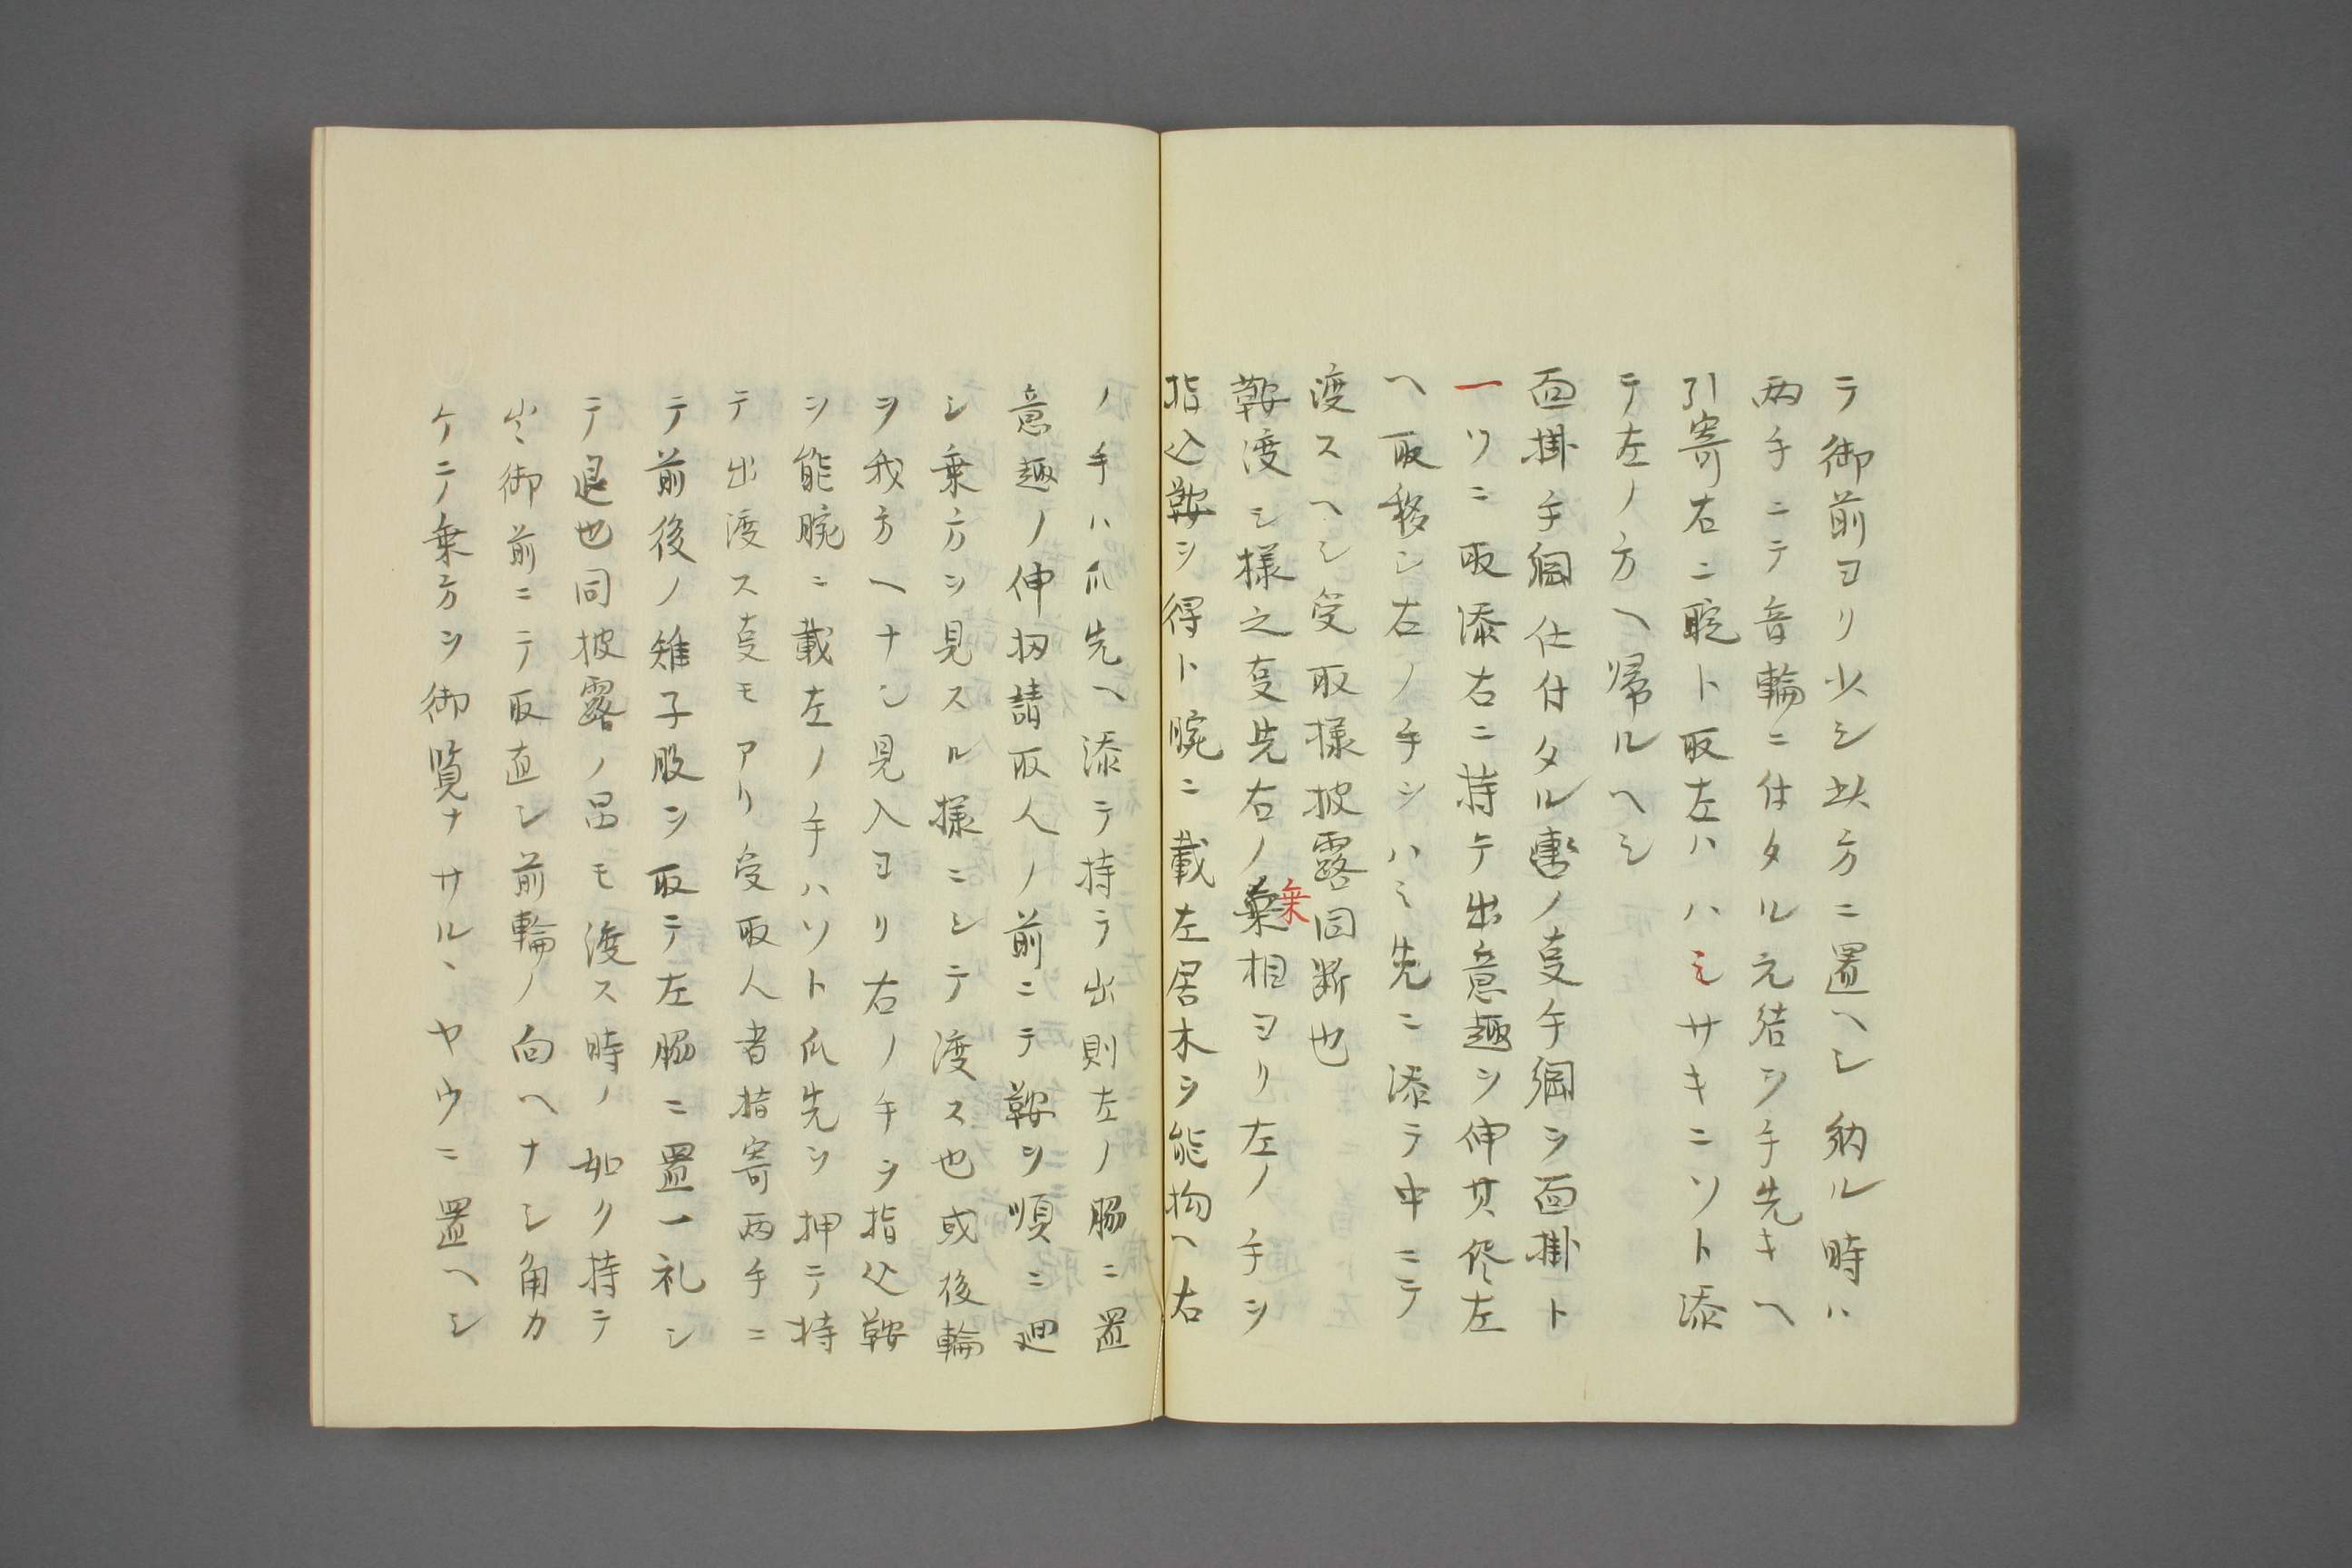 テ御前ヨリ少シ此方ニ置ヘシ納ル時ハ
両手ニテ音輪ニ付タル元結ヲ手先キヘ
引寄右ニ聢ト取左ハハミサキニソト添
テ左ノ方ヘ帰ルヘシ
面掛手綱仕付タル轡ノ叓手綱ヲ面掛ト
一ツニ取添右ニ持テ出意趣ヲ伸其侭左
ヘ取移シ右ノ手ヲハミ先ニ添テ中ニテ
渡スヘシ受取様披露同断也
鞍渡シ様之叓先右ノ乗相ヨリ左ノ手ヲ
乗
指込鞍ヲ得ト腕ニ載左居木ヲ能拘ヘ右
ノ手ハ爪先ヘ添テ持テ出則左ノ脇ニ置
意趣ノ伸扨請取人ノ前ニテ鞍ヲ順ニ廻
シ乗方ヲ見スル様ニシテ渡ス也或後輪
ヲ我方ヘナシ見入ヨリ右ノ手ヲ指込鞍
ヲ能腕ニ載左ノ手ハソト爪先ヲ押テ持
テ出渡ス叓モアリ受取人者指寄両手ニ
テ前後ノ雉子股ヲ取テ左脇ニ置一礼シ
テ退也同披露ノ呂モ渡ス時ノ如ク持テ
出御前ニテ取直シ前輪ノ向ヘナシ角カ
ケテ乗方ヲ御覧ナサルヽヤウニ置ヘシ